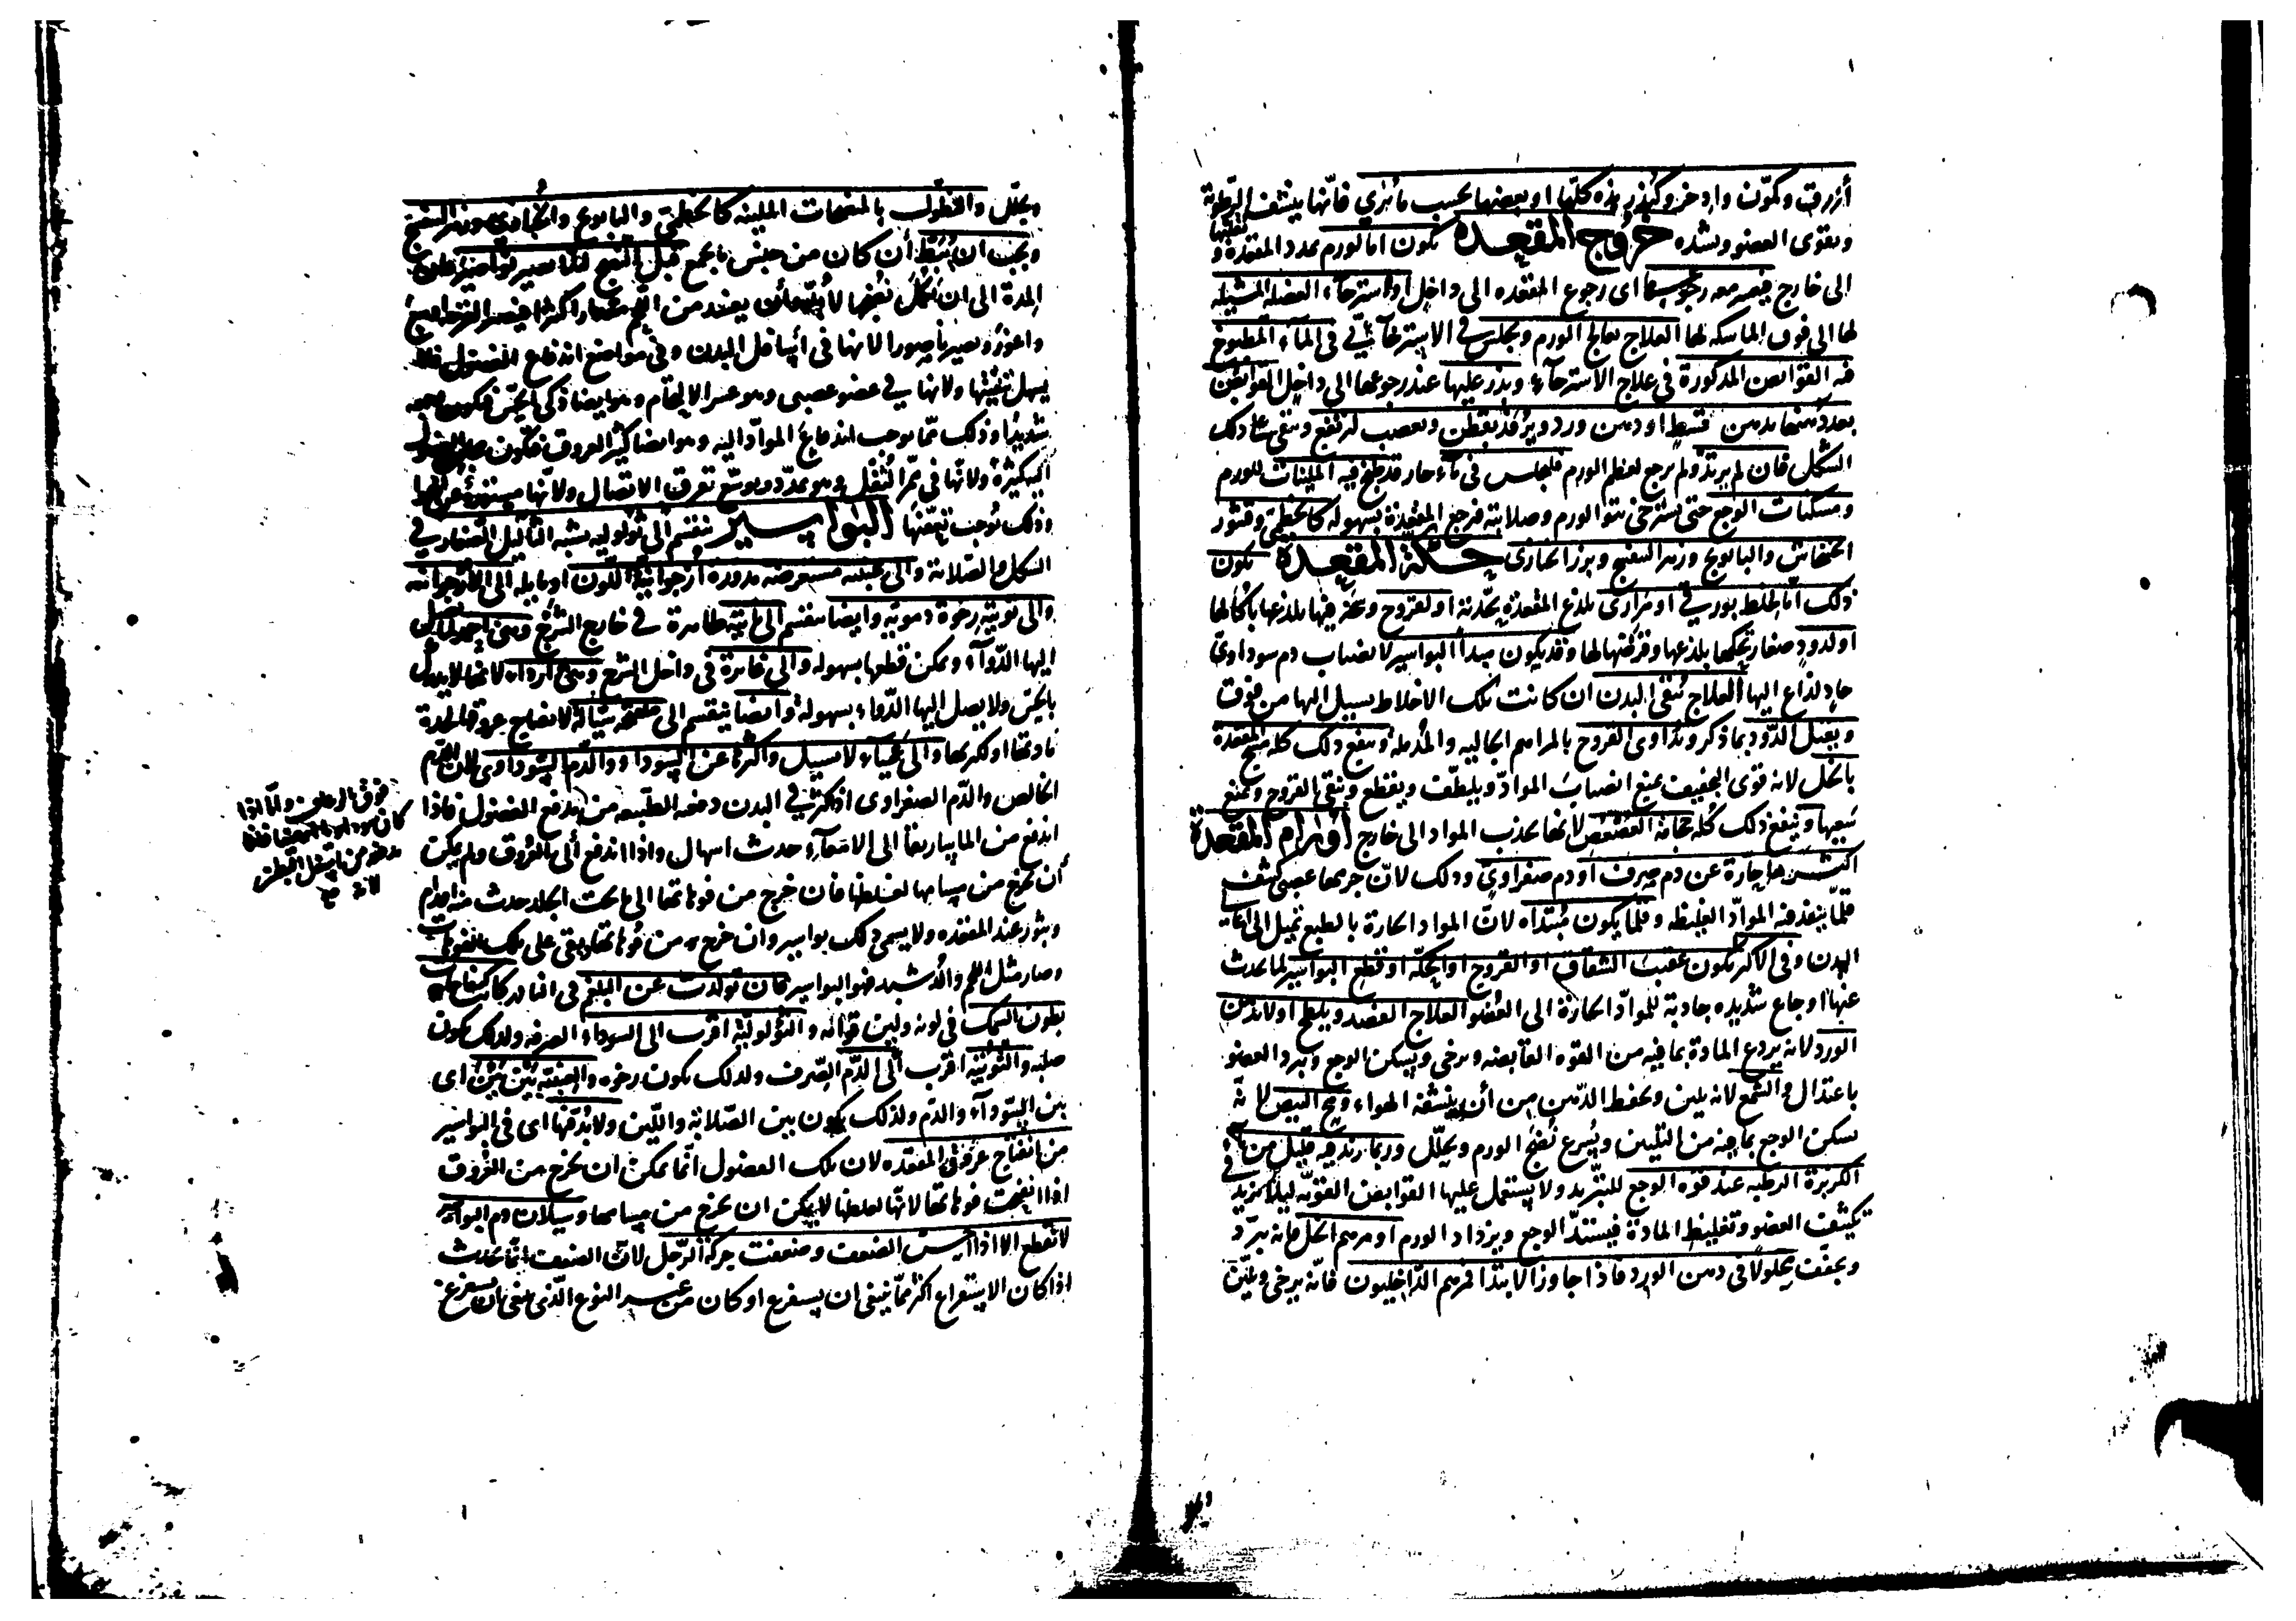 أزرق وكمون واذخر وكندر هذه كلها او بعضها بحسب ما نرى فانها ينشف الرطوبة
ويقوى العضو ويشده خروج المقعدة يكون اما لورم يمدد المقعدة و يقلبها
الى خارج فيعسر معه رجوعها اى رجوع المقعده الى داخل او استرخاء العضلة المشيله
لها الى فوق الماسكه لها العلاج يعالج الورم ويجلس في الاسترخائى في الماء المطبوخ
فيه القوابض المذكورة في علاج الاسترخاء ويذر عليها عند رجوعها الى داخل القوابض
بعد دهنها بدهن قسط او دهن ورد ويرفد بقطن ويعصب لترتفع وتبقى على ذلك
الشكل فان لم يرتد ولم يرجع لعظم الورم فليجلس في ماء حار قد طبخ فيه الملينات للورم
ومسكنات الوجع حتى يسترخى نتو الورم وصلابته فيرجع المقعدة بسهوله كالخطمى وقشور
الخشخاش والبابونج وزهر البنفسج وبزر الخبازى حكة المقعدة يكون
ذلك اما لخلط بورقي او مرارى يلذع المقعدة بحدته او لقروح وعفر فيها يلذعها باكالها
او لدود صغار تحكها بلذعها وقرضتها لها وقد يكون مبدأ البواسير لانصباب دم سوداوى
حاد لذاع اليها العلاج ينقى البدن ان كانت تلك الاخلاط تسيل اليها من فوق
ويقتل الدود بما ذكر وتداوى القروح بالمراهم الجاليه والمدمله وينفع ذلك كله مسح المقعدة
بالخل لانه قوى التجفيف يمنع انصباب المواد ويلطف ويقطع وينقى القروح ويمنع
سعيها وينفع ذلك كله حجامة العصعص لانها يجذب المواد الى خارج أورام المقعدة
اكثرها حارة عن دم صرف او دم صفراوى وذلك لان جرمها عصبى كثيف
قلما ينفذ فيه المواد الغليظه وقلما يكون مبتداه لان المواد الحارة بالطبع تميل الى اعالى
البدن وفى الاكثر يكون عقيب الشقاق او القروح او الحكه او قطع البواسير لما يحدث
عنها اوجاع شديده جاذبة للمواد الحارة الى العضو العلاج الفصد ويلطخ اولا بدهن
الورد لانه يردع المادة بما فيه من القوه القابضه ويرخى ويسكن الوجع ويبرد العضو
باعتدال والشمع لانه يلين ويحفظ الدهن من أن ينشفه الهواء ومح البيض لانه
يسكن الوجع بما فيه من التليين ويسرع نضج الورم ويحلل وربما زيد فيه قليل من ماء
الكزبرة الرطبه عند قوة الوجع للتبريد ولا يستعمل عليها القوابض القويه ليلا يزيد في
تكثيف العضو وتغليظ المادة فيشتد الوجع ويزداد الورم او مرهم الخل فانه يبرد
ويجفف محلولا في دهن الورد فاذا جاوز الابتدا فمرهم الداخليون فانه يرخى ويلين
ويحلل والنطول بالمنضجات الملينه كالخطمى والبابونج والخبازى وزهر البنفسج
ويجب ان يبط أن كان من جنس ما يجمع قبل النضج لئلا يصير نواصير
المدة الى ان يكمل نضجها
واغور ويصير ناصورا لانها في أسافل البدن وفي مواضع اندفاع الفضول فلا
يسهل تنقيتها ولانها في عضو عصبى وهو عسر الالتحام وهو ايضا ذكى الحس فيكون وجعه
شديدا وذلك مما يوجب اندفاع المواد اليه وهو ايضا كثير العروق فيكون
الكثيرة ولانها في ممر الثفل وهو يمدد ويوسع تفرق الاتصال ولانها
وذلك يوجب تعفنها البواسير ينقسم الى ثولوليه يشبه الثآليل الصغار في
الشكل والصلابة والى عنبيه مستعرضه مدورة أرجوانية اللون او مايله الى الارجوانيه
والى توثية رخوة دمويه وايضا ينقسم الى ناتية ظاهرة في خارج الشرج وهى
اليها الدواء ويمكن قطعها بسهوله والى غائرة في داخل الشرج وهى أردأ لانها لا يدرك
بالحس ولا يصل اليها الدواء بسهولة وايضا ينقسم الى منفتحة سيالة لانفتاح عروقها لحدة
مادتها او كثرتها والى عمياء لا تسيل واكثرها عن السوداء والدم السوداوى لان الدم
الخالص والدم الصفراوى اذا كثر في البدن دفعه الطبيعه من مدفع الفضول فاذا
اندفع من الماساريقا الى الامعاء حدث اسهال واذا اندفع الى العروق ولم يمكن
أن يخرج من مسامها لغلظها فان خرج من فوهاتها الى تحت الجلد حدث منه اورام
وبثور عند المقعده ولا يسمى ذلك بواسير وان خرج من فوهاتها وبقى على تلك الفوهات
وصار مثل اللحم والدشبد فهو البواسير فان تولدت عن البلغم في النادر كانت كنفاخات
بطون السمك في لونه ولين قوامه والثؤلولية اقرب الى السوداء الصرفه ولذلك يكون
صلبه والتوثية اقرب الى الدم الصرف ولذلك يكون رخوه والعنبيه بين بين اى
بين السوداء والدم ولذلك يكون بين الصلابة واللين ولا بد فيها اى في البواسير
من انفتاح عروق المقعده لان تلك الفضول انما يمكن ان يخرج من العروق
اذا انفتحت فوهاتها لانها لغلظها لا يمكن ان يخرج من مسامها وسيلان دم البواسير
لا يقطع الا اذا احس الضعف وضعفت حركة الرجل لان الضعف انما يحدث
اذا كان الاستفراغ اكثر مما ينبغى ان يستفرغ او كان من غير النوع الذى ينبغى ان يستفرغ
فوق واما اذا
كان
لانه صح